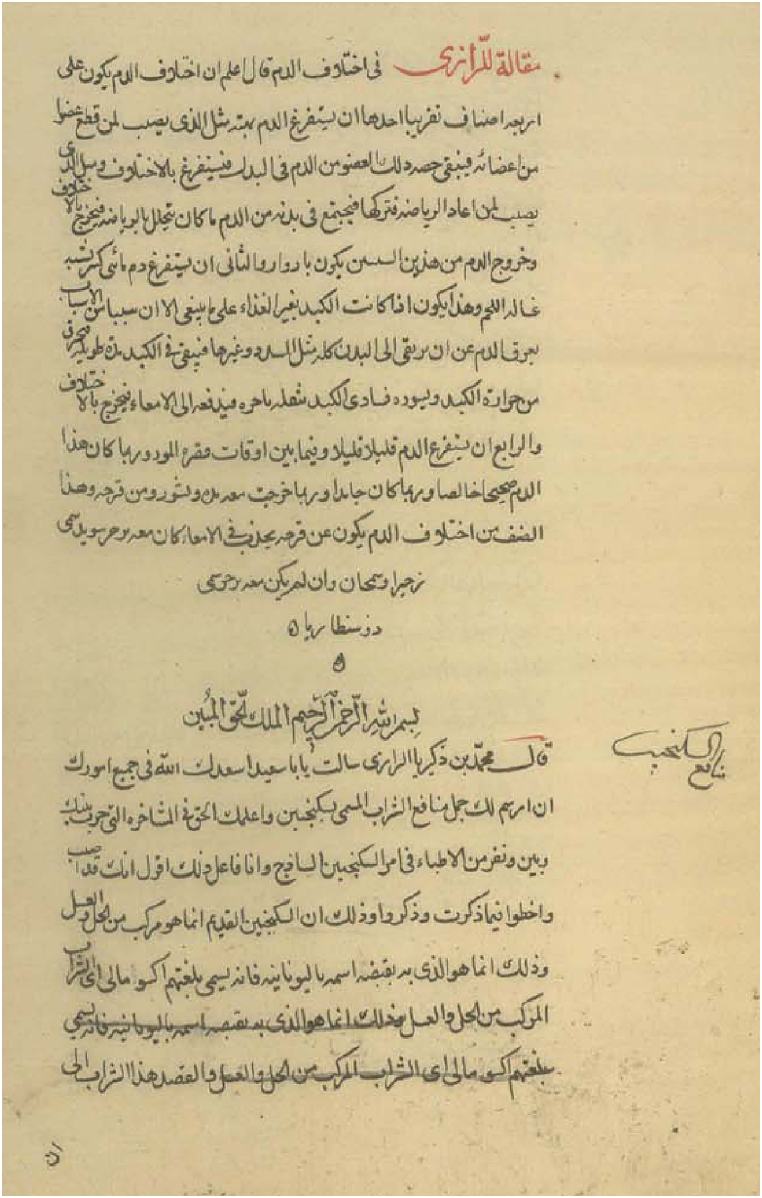 مقالة للرازى فى اختلاف الدم قال اعلم ان اختلاف الدم يكون على
اربعه اصناف تقريبا احدها ان يستفرغ الدم بمنه مثل الذى يصيب لمن قطع عضوا
من اعضائه فيبقى حصه ذلك العضو من الدم فى البدن فيستفرغ بالاختلاف ومثل الذى
يصيب لمن اعاد الرياضه فتركها فيجتمع فى بدنه من الدم ما كان يتحلل بالرياضه فيخرج بالاختلاف
وخروج الدم من هذين السببين يكون بادوار والثانى ان يستفرغ دم مائى
غساله اللحم وهذا يكون اذا كانت الكبد بغير الغذاء على ما ينبغى الا ان سببا من الاسباب
يعوق الدم عن ان يرتقى الى البدن كله مثل السدد وغيرها فيبقى فى الكبد مدة طويله فيحرق
من حرارة الكبد ويسوده فتاذى الكبد بثقله باخره فيدفعه الى الامعاء فيخرج بالاختلاف
والرابع ان يستفرغ الدم قليلا قليلا وفيما بين اوقات وربما كان هذا
الدم صحيحا خالصا وربما كان جامدا وربما خرجت معه مده وقشور من قرحه وهذا
الصنف من اختلاف الدم يكون عن قرحه يحدث فى الامعاء كان معه يسمى
زحيرا وان لم يكن معه يسمى
ذوسنطاريا ه
ه
بسم الله الرحمن الرحيم الملك الحق المبين
منافع السكنجبين
قال محمد بن ذكريا الرازى سالت يا با سعيد اسعدك الله فى جميع امورك
ان ارسم لك جمل منافع الشراب المسمى بسكنجبين واعلمك الحق فى المشاجره التى جرت بينك
وبين نفر من الاطباء فى امر السكنجبين الساذج وانا فاعل ذلك اقول انك قد اصبت
واخطوا فيما ذكرت وذكروا وذلك ان السكنجبين القديم انما هو مركب من الخل والعسل
وذلك انما هو الذى به يقتضه اسمه باليونانيه فانه يسمى بلغتهم اكسو مالى اى الشراب
المركب من الخل والعسل وذلك انما هو الذى به يقتضه اسمه باليونانيه فانه يسمى
بلغتهم اكسو مالى اى الشراب المركب من الخل والعسل والقصد هذا الشراب الى
ان